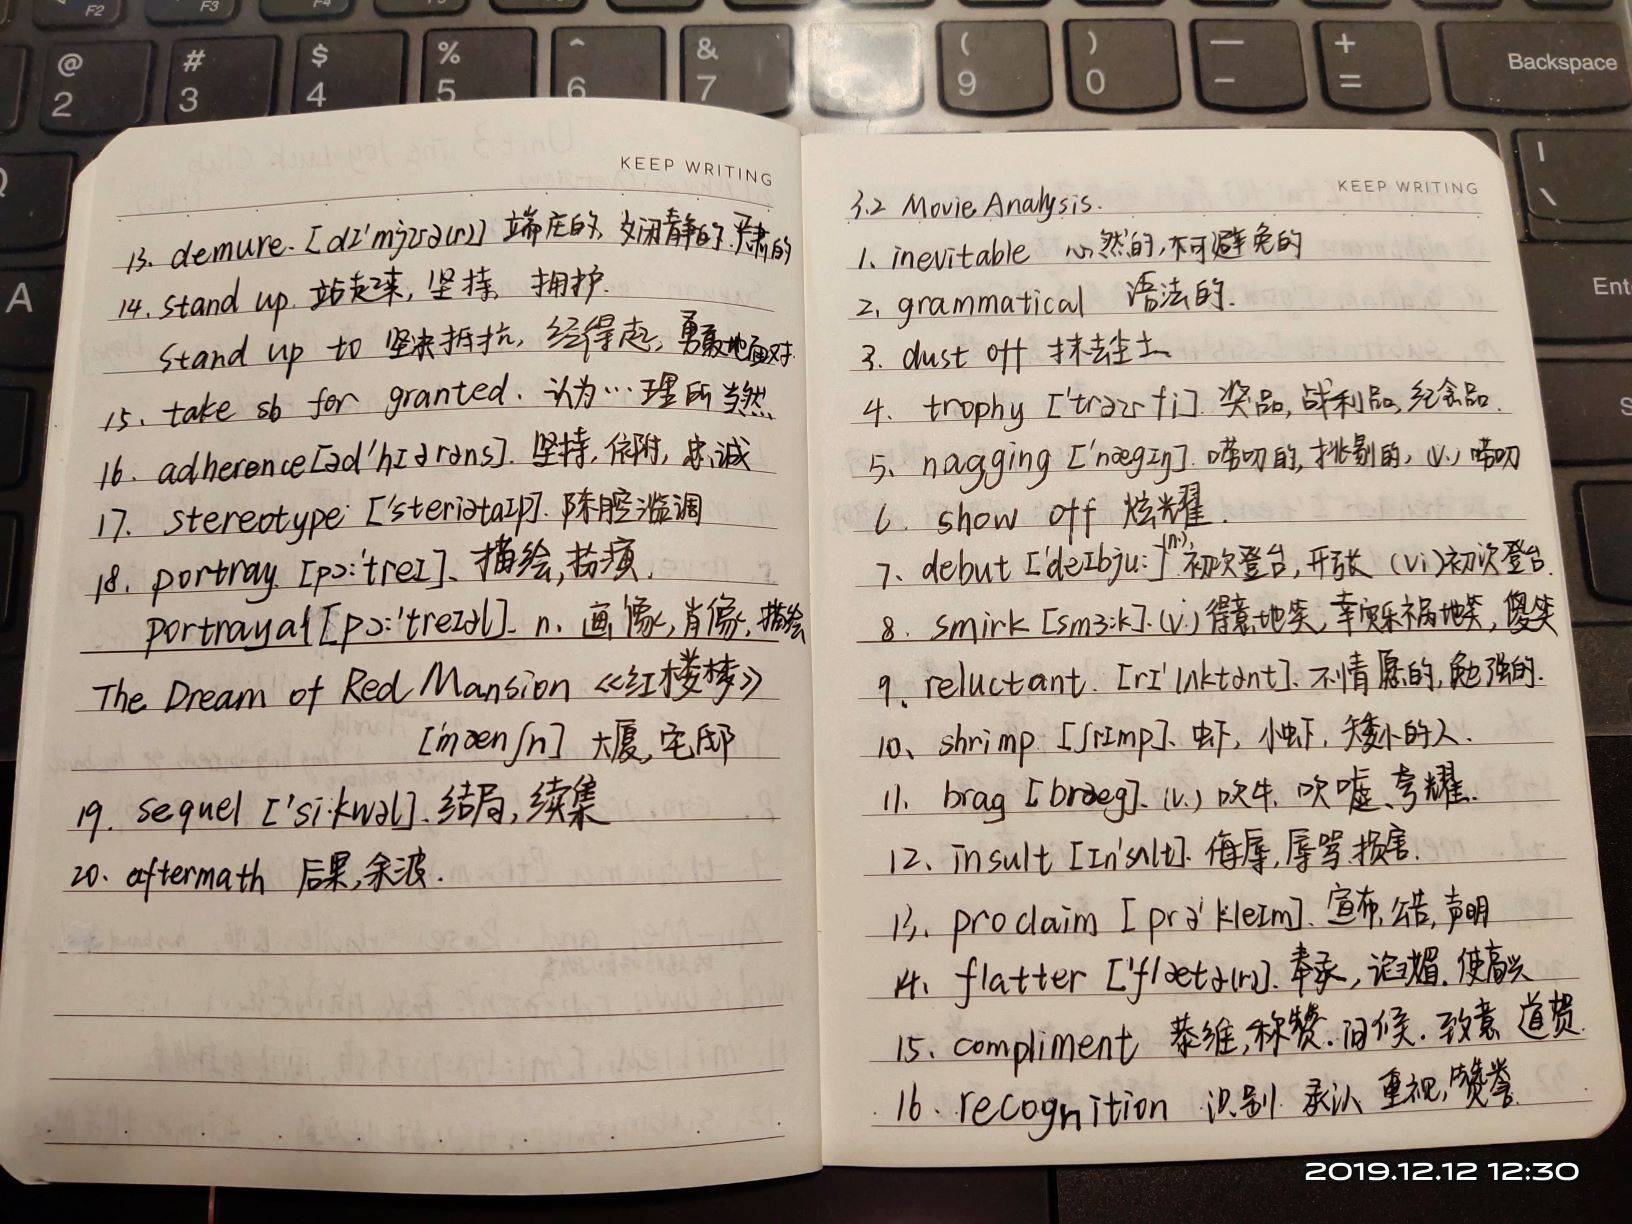 @
#
$
%
^
&
(
)
—
+
Backspace
2
3
4
5
6
7
8
9
0
-
=
A
KEEP WRITING
13. demure. [dɪ'mjʊə(r)] 端庄的, 文闲静的, 严肃的
14. stand up. 站起来, 坚持, 拥护.
stand up to 坚决抵抗, 经得起, 勇敢地面对.
15. take sb for granted. 认为…理所当然
16. adherence [əd'hɪərəns]. 坚持, 依附, 忠诚
17. stereotype ['steriətaɪp]. 陈腔滥调
18. portray [pɔ:'treɪ]. 描绘, 扮演.
portrayal [pɔ:'treɪəl]. n. 画像, 肖像, 描绘
The Dream of Red Mansion 《红楼梦》
['mænʃn] 大厦, 宅邸
19. sequel ['si:kwəl]. 结局, 续集
20. aftermath 后果, 余波.
KEEP WRITING
3.2 Movie Analysis.
1. inevitable 必然的, 不可避免的
2. grammatical 语法的.
3. dust off 抹去尘土
4. trophy ['trəʊfi]. 奖品, 战利品, 纪念品.
5. nagging ['nægɪŋ]. 唠叨的, 挑剔的, (v.) 唠叨
6. show off 炫耀.
7. debut ['deɪbju:] (n.) 初次登台, 开张 (vi) 初次登台.
8. smirk [smɜ:k]. (v.) 得意地笑, 幸灾乐祸地笑, 傻笑
9. reluctant. [rɪ'lʌktənt]. 不情愿的, 勉强的.
10. shrimp. [ʃrɪmp]. 虾, 小虾, 矮小的人.
11. brag [bræg]. (v.) 吹牛, 吹嘘, 夸耀.
12. insult [ɪn'sʌlt]. 侮辱, 辱骂, 损害.
13. proclaim [prə'kleɪm]. 宣布, 公告, 声明
14. flatter ['flætə(r)]. 奉承, 谄媚, 使高兴
15. compliment 恭维, 称赞. 问候. 致意 道贺.
16. recognition 识别. 承认 重视, 赞誉.
2019.12.12 12:30